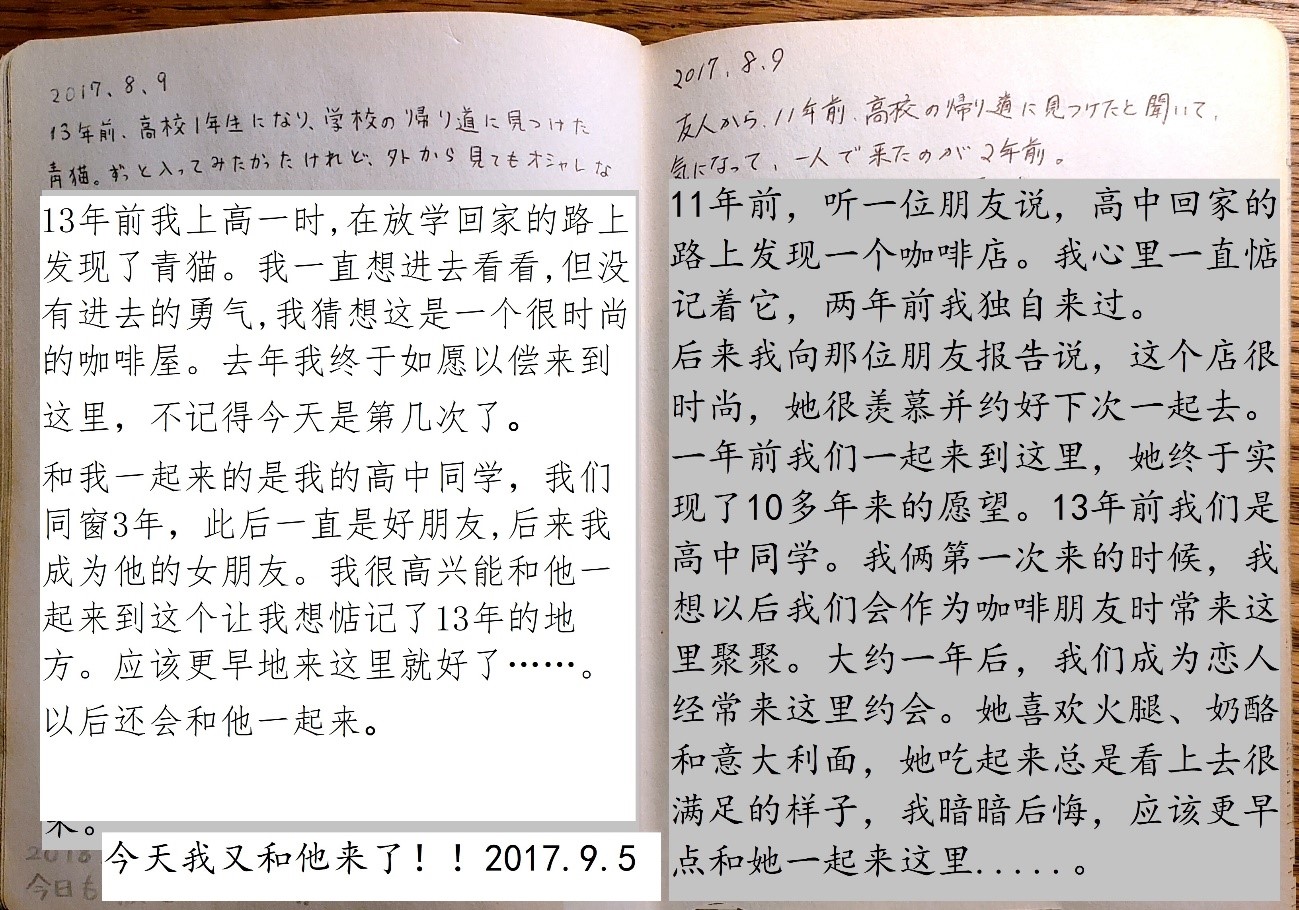 2017、8、9
13年前、高校1年生になり、学校の帰り道に見つけた
青猫。ずっと入ってみたかったけれど、外から見てもオシャレな
13年前我上高一时,在放学回家的路上
发现了青猫。我一直想进去看看,但没
有进去的勇气,我猜想这是一个很时尚
的咖啡屋。去年我终于如愿以偿来到
这里，不记得今天是第几次了。
和我一起来的是我的高中同学，我们
同窗3年，此后一直是好朋友,后来我
成为他的女朋友。我很高兴能和他一
起来到这个让我想惦记了13年的地
方。应该更早地来这里就好了……。
以后还会和他一起来。
来。
今日も
今天我又和他来了！！2017.9.5
2017、8、9
友人から、11年前、高校の帰り道に見つけたと聞いて、
気になって、一人で来たのが2年前。
11年前，听一位朋友说，高中回家的
路上发现一个咖啡店。我心里一直惦
记着它，两年前我独自来过。
后来我向那位朋友报告说，这个店很
时尚，她很羡慕并约好下次一起去。
一年前我们一起来到这里，她终于实
现了10多年来的愿望。13年前我们是
高中同学。我俩第一次来的时候，我
想以后我们会作为咖啡朋友时常来这
里聚聚。大约一年后，我们成为恋人
经常来这里约会。她喜欢火腿、奶酪
和意大利面，她吃起来总是看上去很
满足的样子，我暗暗后悔，应该更早
点和她一起来这里.....。